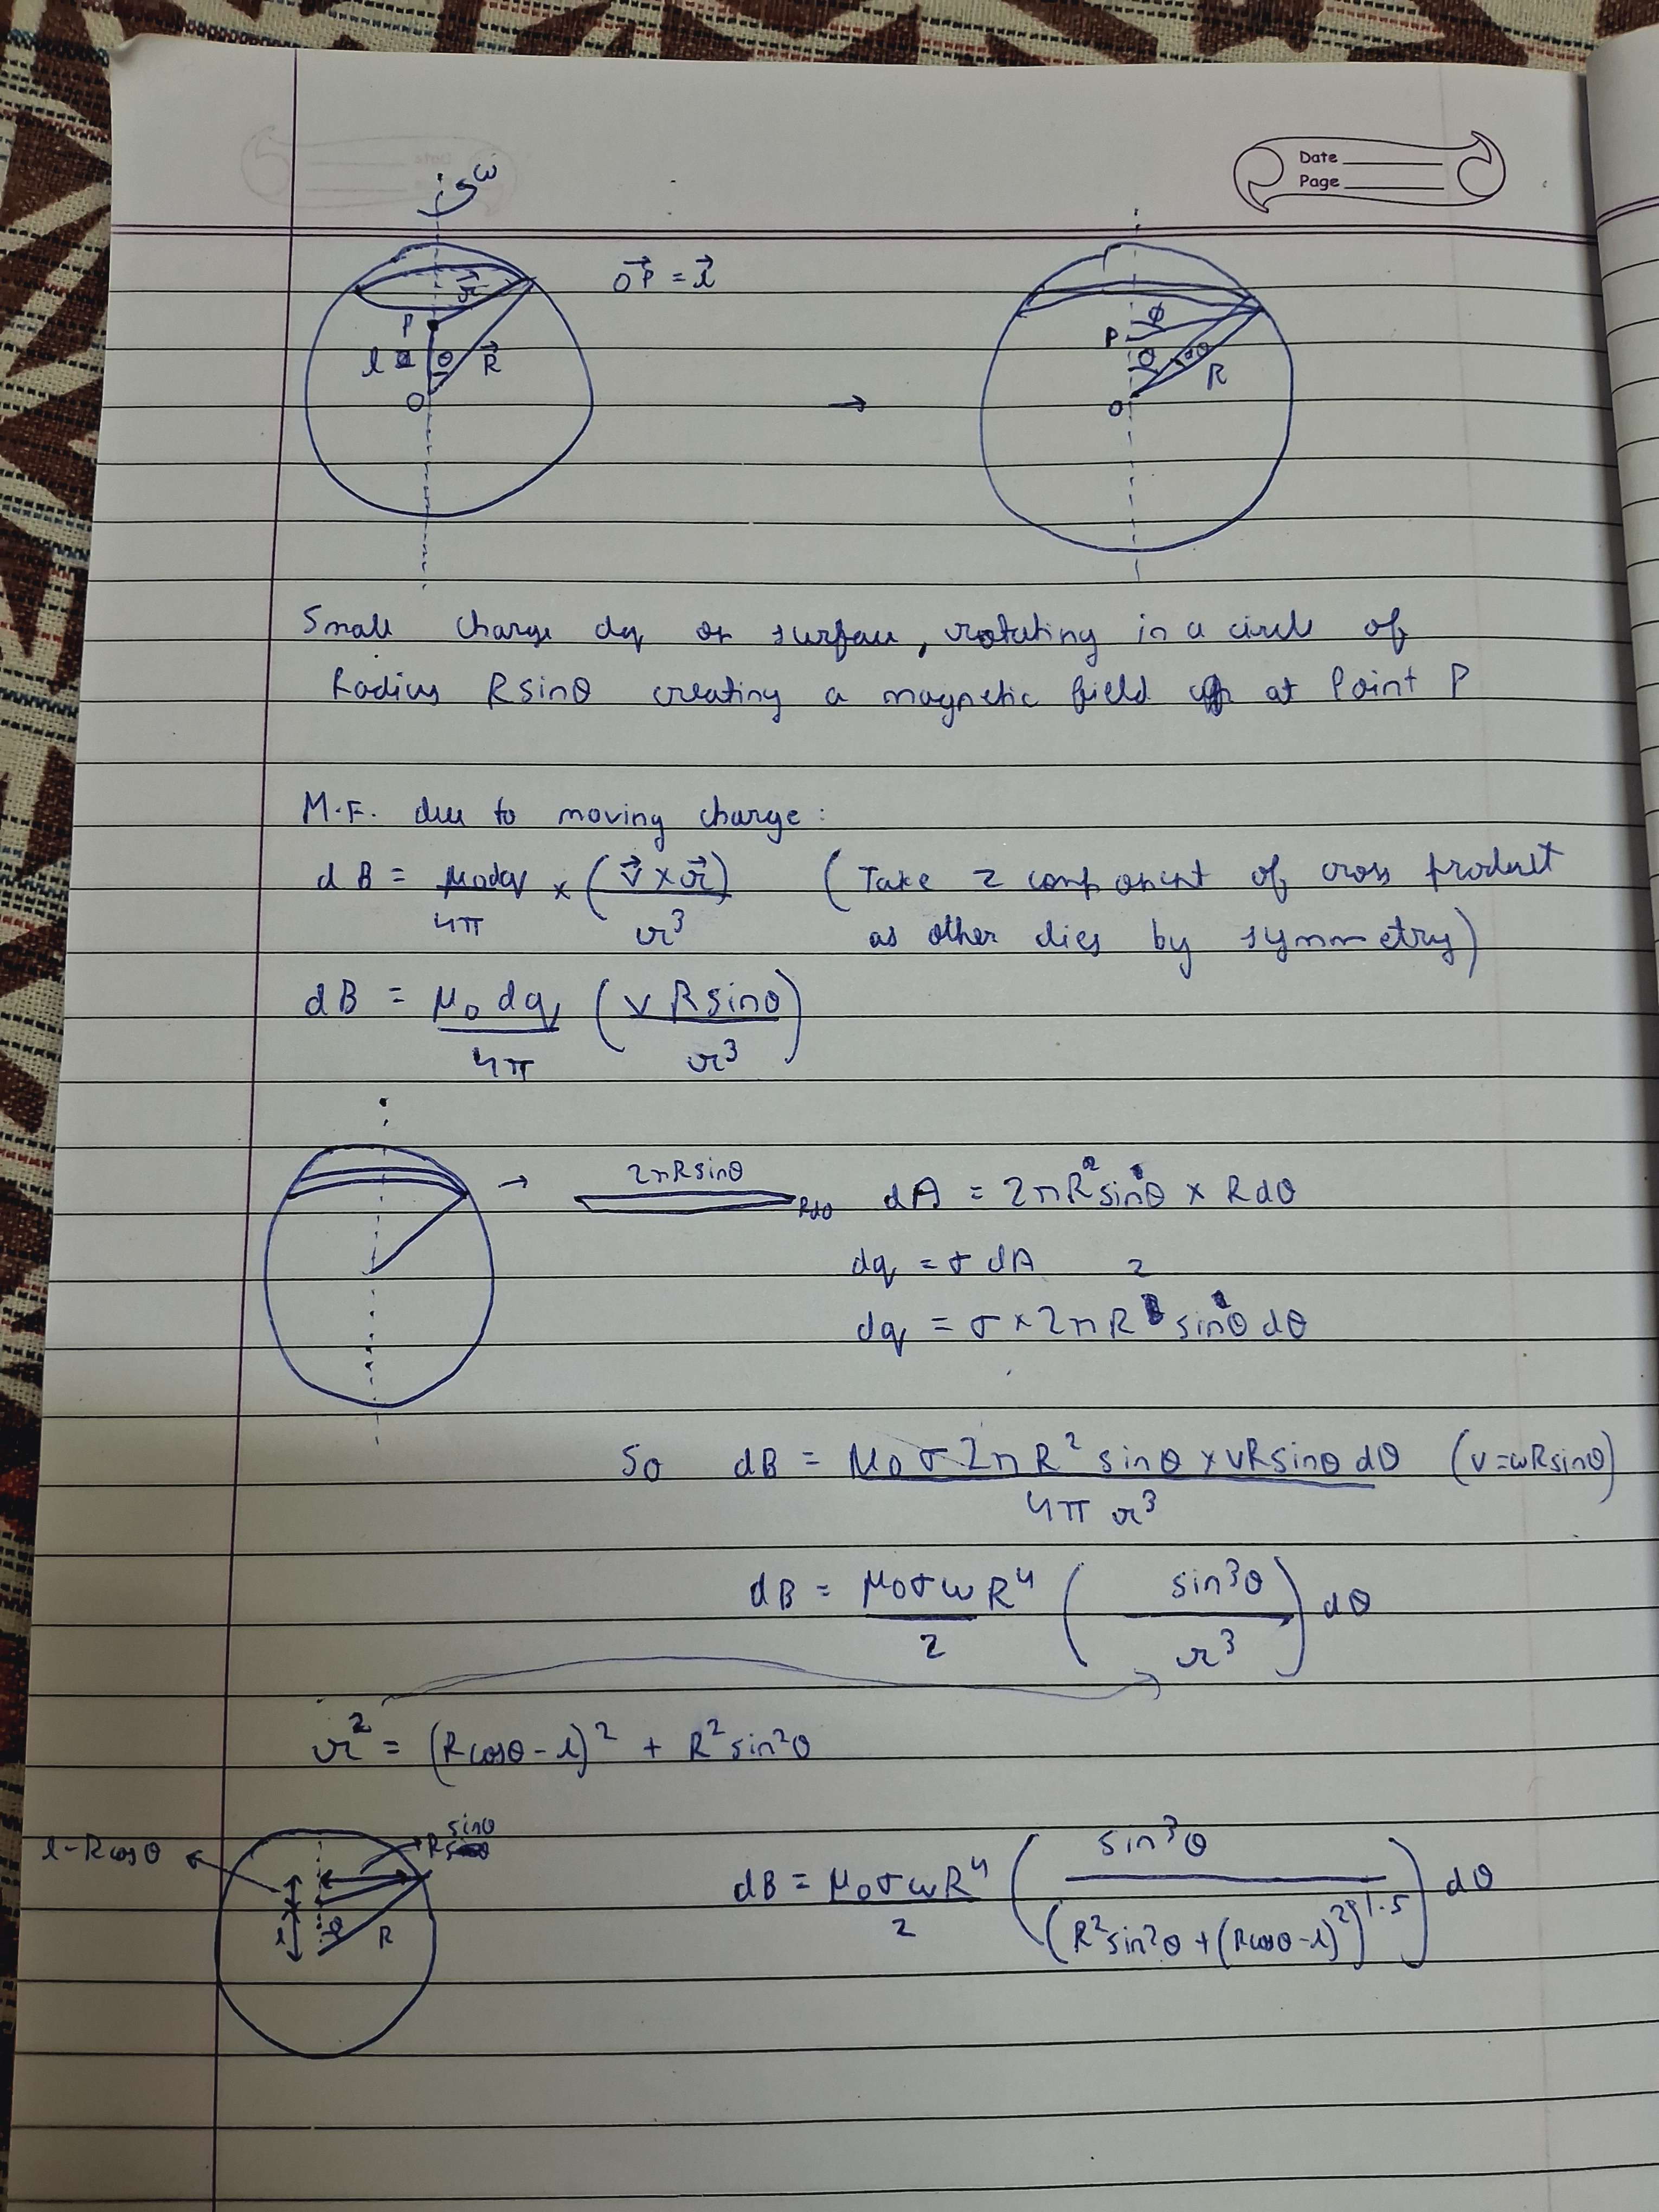 Date
Page
ω
OP⃗ = l⃗
r⃗
P
l θ R⃗
O
→
ϕ
P
θ dθ
R
O
Small charge dq on surface, rotating in a circle of
Radius R sinθ creating a magnetic field at Point P
M.F. due to moving charge :
dB = μ₀dq/4π × (v⃗ × r⃗)/r³ (Take z component of cross product
as other dies by symmetry)
dB = μ₀ dq/4π (v R sinθ/r³)
→ 2πR sinθ Rdθ dA = 2πR sinθ × Rdθ
dq = σ dA
dq = σ × 2πR² sinθ dθ
So dB = μ₀ σ 2πR² sinθ × vR sinθ dθ/4π r³ (v = ωR sinθ)
dB = μ₀σω R⁴/2 (sin³θ/r³) dθ
r² = (R cosθ - l)² + R² sin²θ
l - R cosθ R sinθ
l θ R
dB = μ₀σωR⁴/2 (sin³θ/(R² sin²θ + (R cosθ - l)²)^1.5) dθ